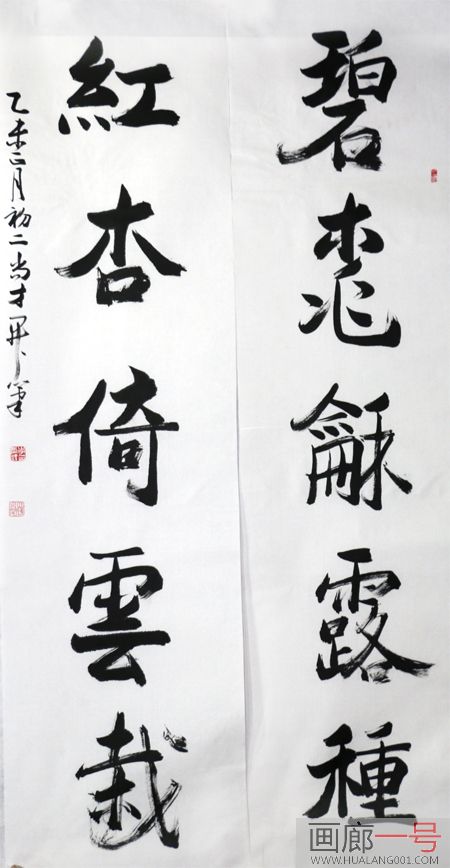 碧桃龢露種
紅杏倚雲栽
乙未正月初二尚才開筆
画廊一号
WWW.HUALANG001.COM